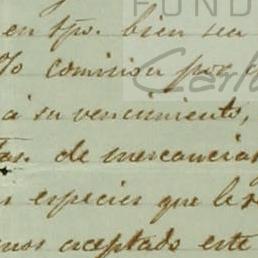 FUND
en tpo. bien sea
% comision por
a su vencimiento,
de mercancias
especies que le
aceptado este